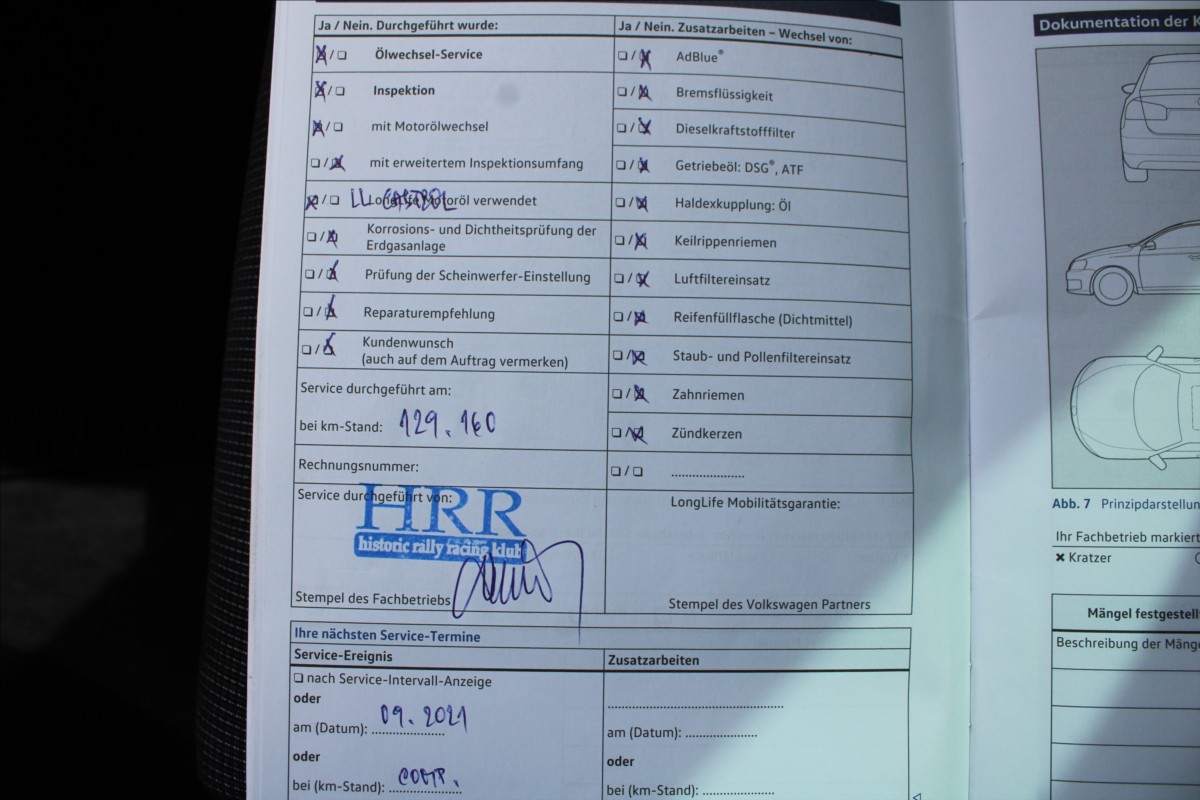 Ja / Nein. Durchgeführt wurde:
Ölwechsel-Service
Inspektion
mit Motorölwechsel
mit erweitertem Inspektionsumfang
LongLife Motoröl verwendet
LL CASTROL
Korrosions- und Dichtheitsprüfung der
Erdgasanlage
Prüfung der Scheinwerfer-Einstellung
Reparaturempfehlung
Kundenwunsch
(auch auf dem Auftrag vermerken)
Service durchgeführt am:
bei km-Stand: 129.160
Rechnungsnummer:
Service durchgeführt von:
HRR
historic rally racing klub
Stempel des Fachbetriebs
Ja / Nein. Zusatzarbeiten – Wechsel von:
AdBlue®
Bremsflüssigkeit
Dieselkraftstofffilter
Getriebeöl: DSG®, ATF
Haldexkupplung: Öl
Keilrippenriemen
Luftfiltereinsatz
Reifenfüllflasche (Dichtmittel)
Staub- und Pollenfiltereinsatz
Zahnriemen
Zündkerzen
....................
LongLife Mobilitätsgarantie:
Stempel des Volkswagen Partners
Ihre nächsten Service-Termine
Service-Ereignis
nach Service-Intervall-Anzeige
oder
am (Datum): 09.2021
oder
bei (km-Stand):
Zusatzarbeiten
am (Datum): ....................
oder
bei (km-Stand): ....................
Dokumentation der K
Abb. 7 Prinzipdarstellun
Ihr Fachbetrieb markiert
✖ Kratzer
Mängel festgestell
Beschreibung der Mänge